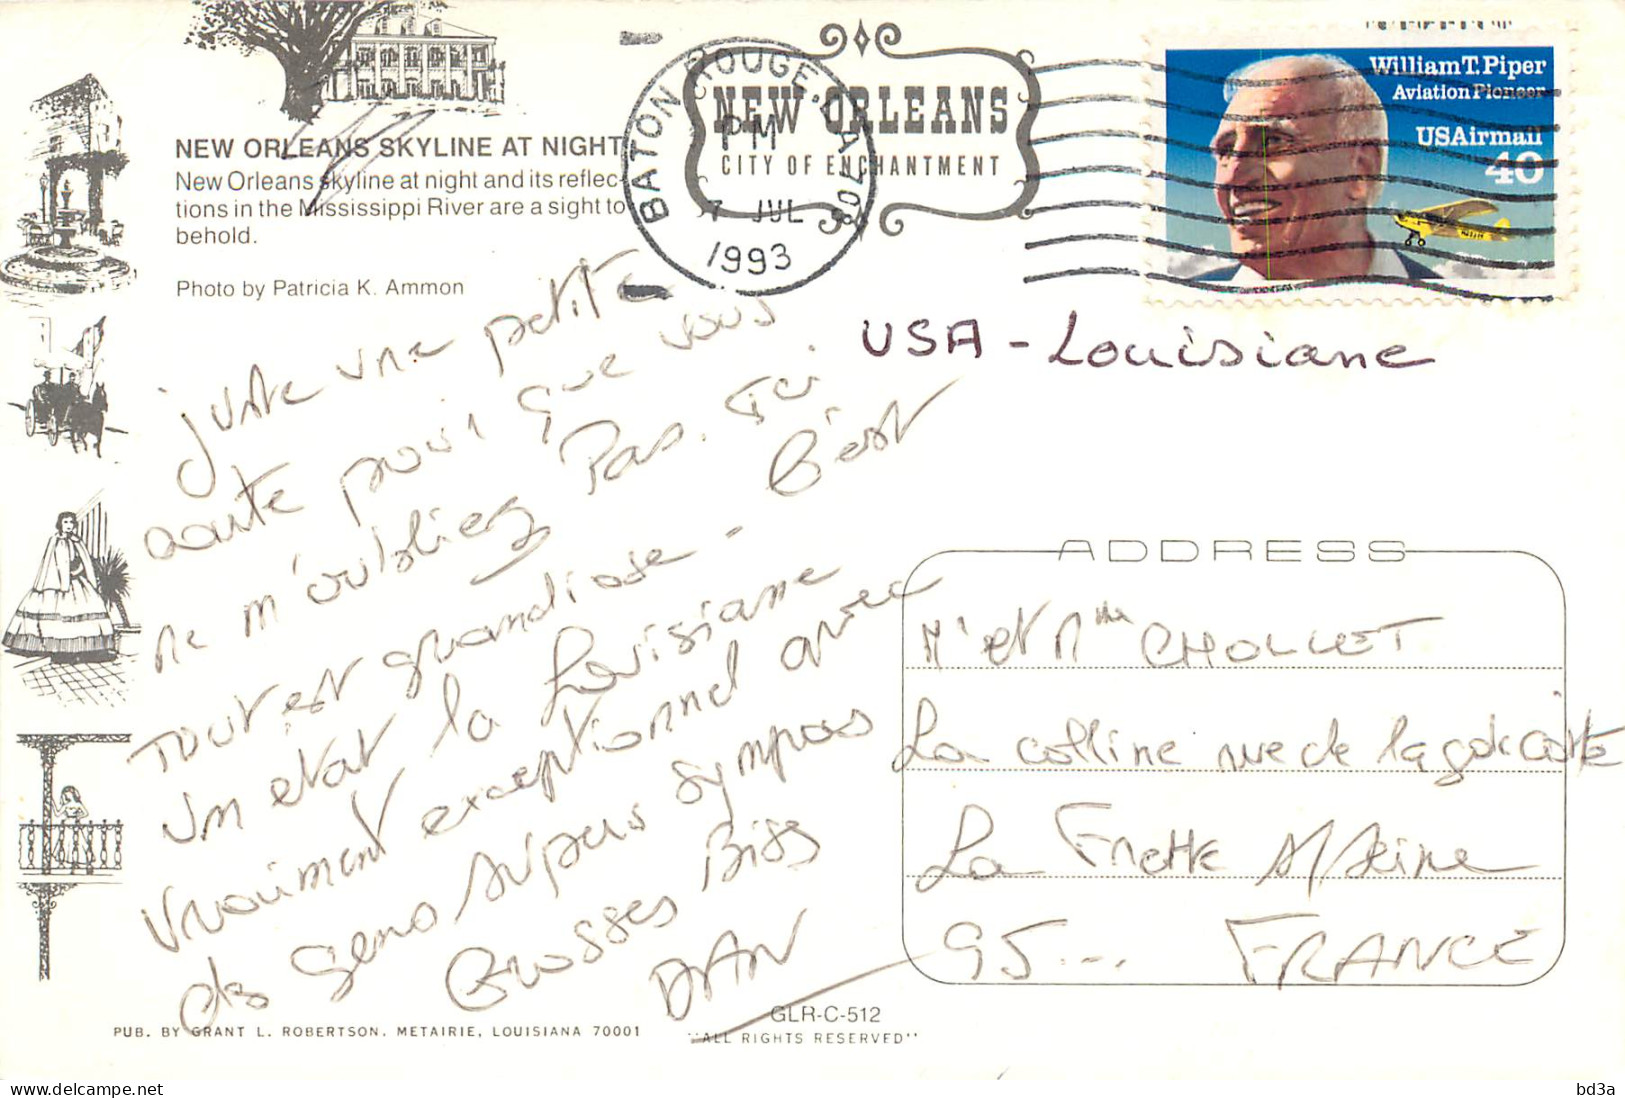 NEW ORLEANS SKYLINE AT NIGHT
New Orleans skyline at night and its reflec-
tions in the Mississippi River are a sight to
behold.
Photo by Patricia K. Ammon
BATON ROUGE, LA 708
PM
7 JUL
1993
NEW ORLEANS
CITY OF ENCHANTMENT
William T. Piper
Aviation Pioneer
USAirmail
40
USA - Louisiane
juste une petite
carte pour que vous
ne m'oubliez Pas. Ici
Tout est grandiose - C'est
un etat la Louisiane
vraiment exceptionnel avec
des gens supers sympas
Grosses Bises
DAN
ADDRESS
Mr et Mme CHOLLET
La colline rue de la
La Frette s/Seine
95... FRANCE
GLR-C-512
PUB. BY GRANT L. ROBERTSON, METAIRIE, LOUISIANA 70001
"ALL RIGHTS RESERVED"
bd3a